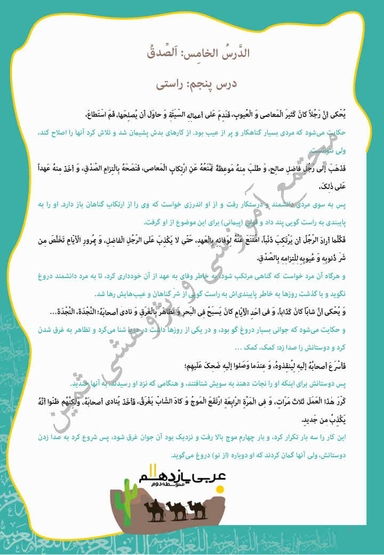 الدَّرسُ الخامِس: اَلصِّدقُ
درس پنجم: راستی
یُحْکیٰ أنَّ رَجُلاً کانَ کَثیرَ المَعاصي وَ العُیوبِ، فَنَدِمَ عَلیٰ أعمالِهِ السَّیِّئَةِ وَ حاوَلَ أن یُصلِحَها، فَمَا اسْتَطاعَ،
حکایت می‌شود که مردی بسیار گناهکار و پر از عیب بود. از کارهای بدش پشیمان شد و تلاش کرد آنها را اصلاح کند،
ولی نتوانست.
فَذَهَبَ إلیٰ رَجُلٍ فاضِلٍ صالِحٍ، وَ طَلَبَ مِنهُ مَوعِظَةً تَمنَعُهُ عَنِ ارْتِکابِ المَعاصي، فَنَصَحَهُ بِالْتِزامِ الصِّدْقِ، وَ أخَذَ مِنهُ عَهداً
عَلیٰ ذلِکَ،
پس به سوی مردی دانشمند و درستکار رفت و از او اندرزی خواست که وی را از ارتکاب گناهان باز دارد. او را به
پایبندی به راست گویی پند داد و قولی (پیمانی) برای این موضوع از او گرفت.
فَکُلَّما أرادَ الرَّجُلُ أن یَرتَکِبَ ذَنْباً، اِمْتَنَعَ عَنهُ لِوَفائِهِ بِالعَهدِ، حَتّیٰ لا یَکْذِبَ عَلَی الرَّجُلِ الفاضِلِ، وَ بِمُرورِ الأیّامِ تَخَلَّصَ مِن
شَرِّ ذُنوبِهِ وَ عُیوبِهِ لِالْتِزامِهِ بِالصِّدْقِ.
و هرگاه آن مرد خواست که گناهی مرتکب شود، به خاطر وفای به عهد از آن خودداری کرد، تا به مرد دانشمند دروغ
نگوید و با گذشت روزها به خاطر پایبندی‌اش به راست گویی از شر گناهان و عیب‌هایش رها شد.
وَ یُحْکیٰ أنَّ شابّاً کانَ کَذّاباً، وَ في أحَدِ الأیّامِ کانَ یَسبَحُ في البَحرِ وَ تَظاهَرَ بِالغَرَقِ وَ نادیٰ أصحابَهُ: النَّجْدَةَ، النَّجْدَةَ...
و حکایت می‌شود که جوانی بسیار دروغ گو بود، و در یکی از روزها داشت در دریا شنا می‌کرد و تظاهر به غرق شدن
کرد و دوستانش را صدا زد: کمک، کمک ...
فَأسْرَعَ أصحابُهُ إلَیهِ لِیُنقِذوهُ، وَ عِندَما وَصَلوا إلَیهِ ضَحِکَ عَلَیهِم؛
پس دوستانش برای اینکه او را نجات دهند به سویش شتافتند، و هنگامی که نزد او رسیدند به آنها خندید.
کَرَّرَ هٰذَا العَمَلَ ثَلاثَ مَرّاتٍ، وَ في المَرَّةِ الرّابِعَةِ ارْتَفَعَ المَوجُ وَ کادَ الشّابُّ یَغرَقُ، فَأخَذَ یُنادي أصحابَهُ، وَلٰکِنَّهُم ظَنّوا أنَّهُ
یَکْذِبُ مِن جَدیدٍ.
این کار را سه بار تکرار کرد، و بار چهارم موج بالا رفت و نزدیک بود آن جوان غرق شود، پس شروع کرد به صدا زدن
دوستانش، ولی آنها گمان کردند که او دوباره (از نو) دروغ می‌گوید.
عربی یازدهم
متوسطه دوم
مجتمع آموزشی و پژوهشی ثمین